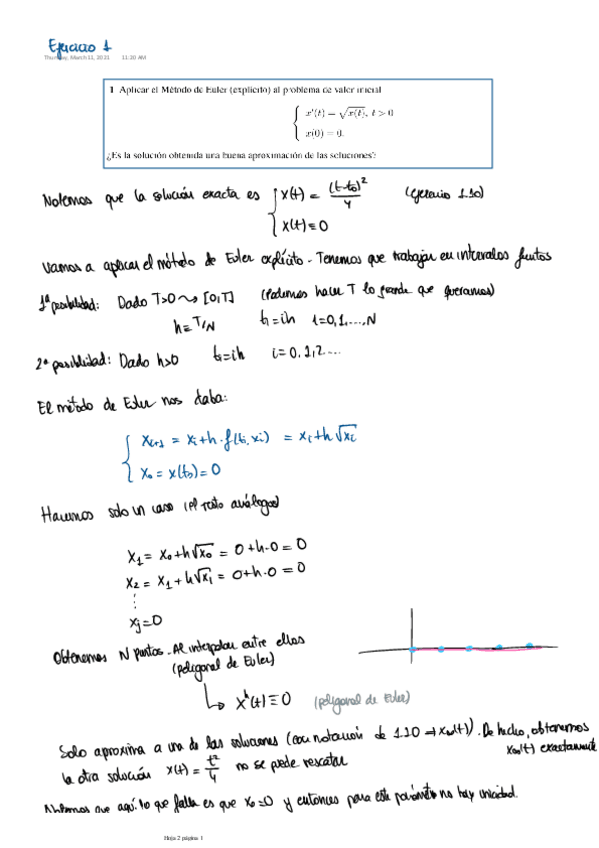 Ejercicio 1
Thursday, March 11, 2021 11:20 AM
1 Aplicar el Método de Euler (explícito) al problema de valor inicial
{ x'(t) = √x(t), t > 0
x(0) = 0.
¿Es la solución obtenida una buena aproximación de las soluciones?
Notemos que la solución exacta es { x(t) = (t-t₀)²/4 (Ejercicio 1.10)
x(t) ≡ 0
Vamos a aplicar el método de Euler explícito. Tenemos que trabajar en intervalos finitos
1ª posibilidad: Dado T>0 ⇝ [0,T] (Podemos hacer T lo grande que queramos)
h = T/N tᵢ = ih i=0,1,...,N
2ª posibilidad: Dado h>0 tᵢ = ih i=0,1,2...
El método de Euler nos daba:
{ xᵢ₊₁ = xᵢ + h·f(tᵢ,xᵢ) = xᵢ + h√xᵢ
x₀ = x(t₀) = 0
Hacemos solo un caso (el resto análogos)
x₁ = x₀ + h√x₀ = 0 + h·0 = 0
x₂ = x₁ + h√x₁ = 0 + h·0 = 0
⋮
xⱼ = 0
Obtenemos N puntos. Al interpolar entre ellos
(poligonal de Euler)
↳ xʰ(t) ≡ 0 (poligonal de Euler)
Solo aproxima a una de las soluciones (con notación de 1.10 → x∞(t)). De hecho, obtenemos
x∞(t) exactamente
la otra solución x(t) = t²/4 no se puede rescatar
Notemos que aquí lo que falla es que x₀=0 y entonces para este parámetro no hay unicidad.
Hoja 2 página 1